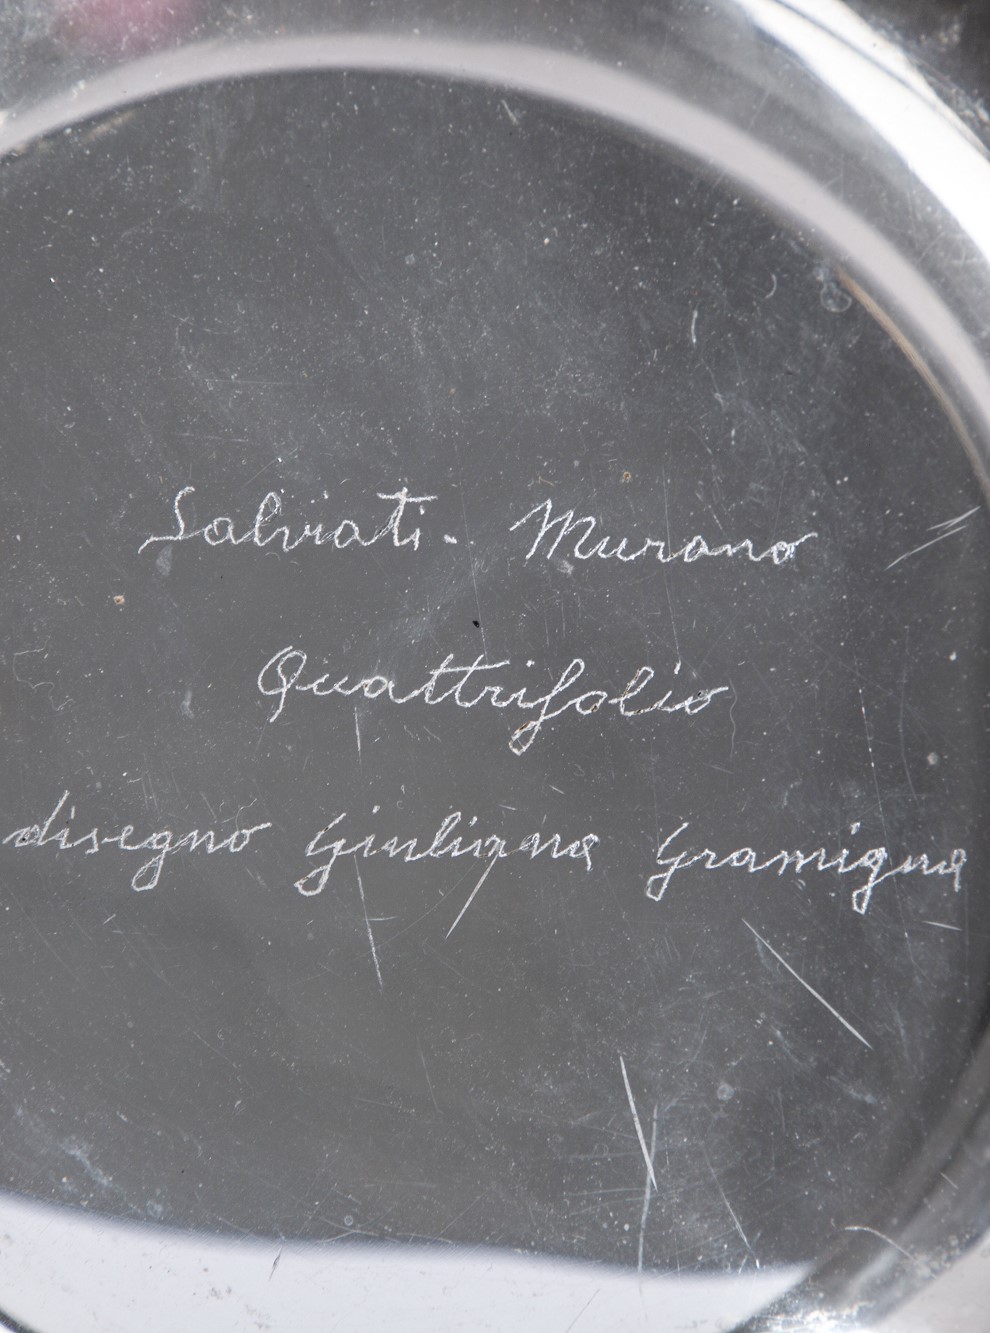 Salviati - Murano
Quattrifolio
disegno Giuliana Gramigna